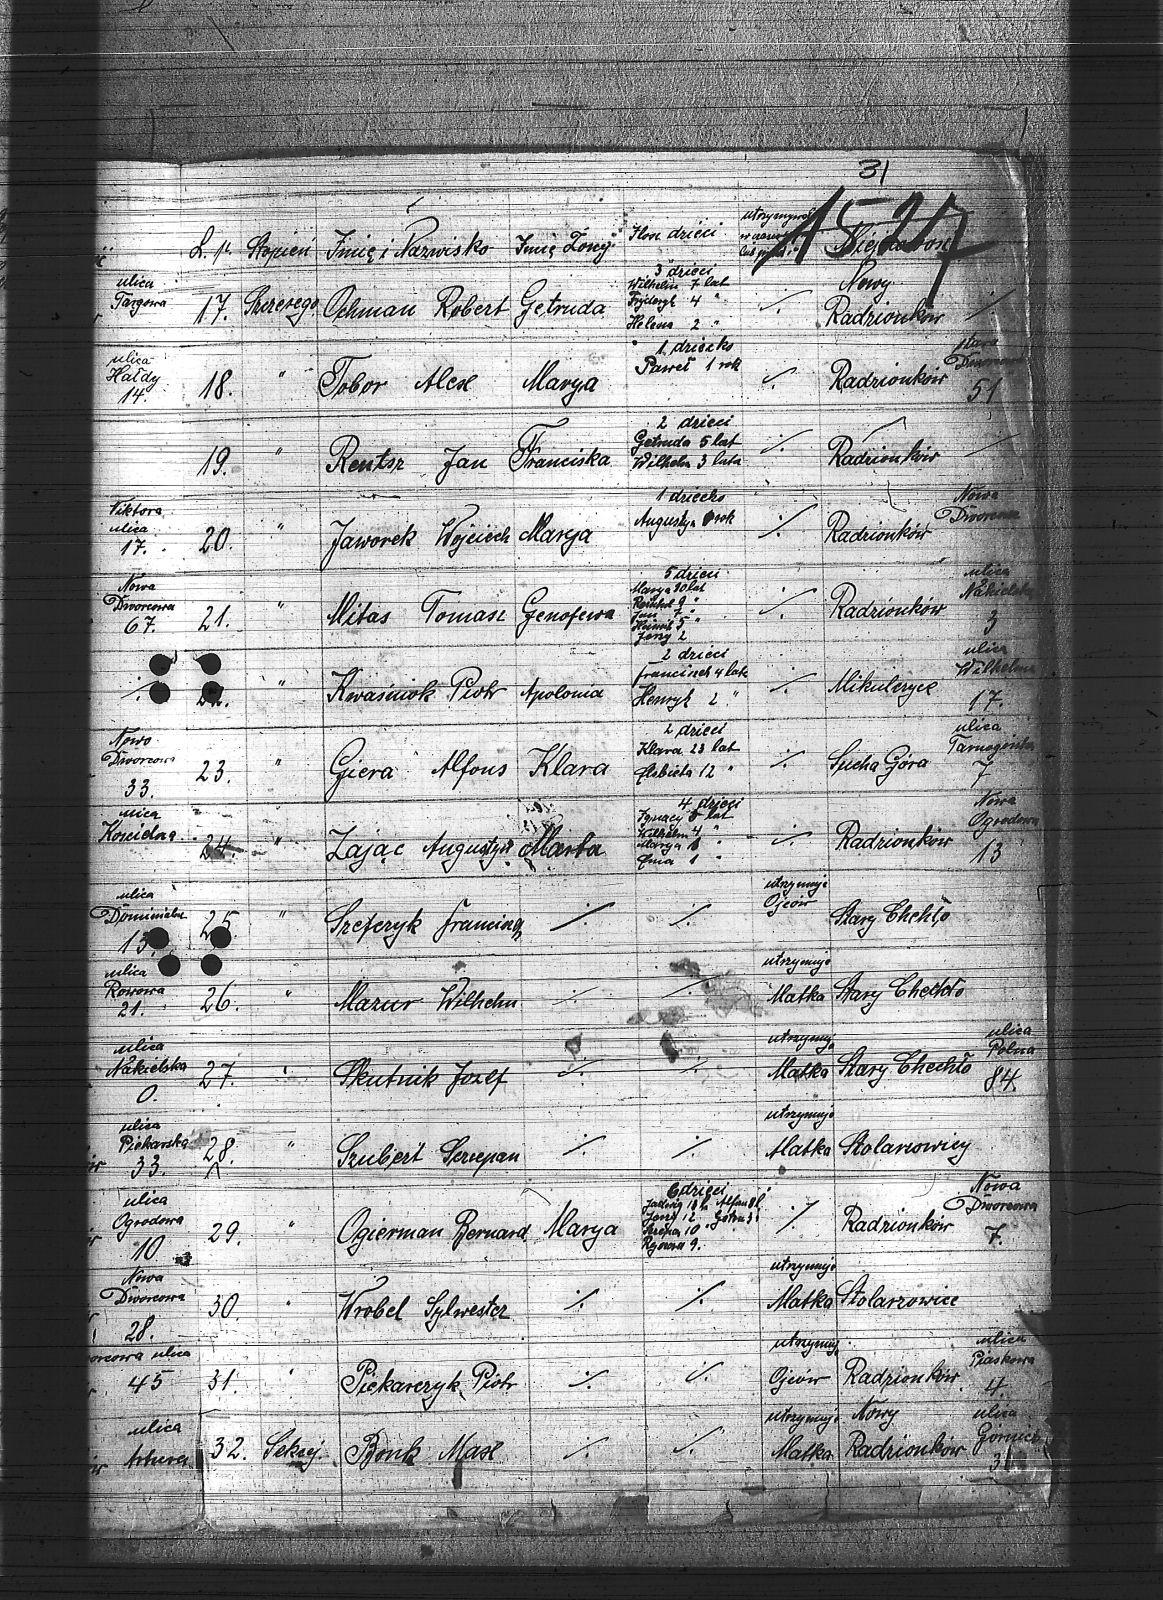 31
15 27
L. p. Stopień Imię i Nazwisko Imię Żony Ilość dzieci
ulica
Targowa
17. Szerego Ochman Robert Getruda
3 dzieci
Wilhelm 7 lat
Fryderyk 4 "
Helena 2 "
Nowy
Radzionków
ulica
Hałdy
14.
18. " Tobor Alex Marya
1 dziecko
Paweł 1 rok
Radzionków
stara
51
19. " Rentsz Jan Franciska
2 dzieci
Getruda 5 lat
Wilhelm 3 lata
Radzionków
Viktora
ulica
17.
20. " Jaworek Wojciech Marya
1 dziecko
Augustyn rok
Radzionków
Nowa
Dworcowa
Nowa
Dworcowa
67.
21. " Mitas Tomasz Genofewa
5 dzieci
Jerzy 2
Radzionków
ulica
Nakielska
3
" Kwaśniok Piotr Apolonia
2 dzieci
Francisek 4 lat
Henryk 2 "
Mikulczyce
ulica
Wilhelma
17.
Nowo
Dworcowa
33.
23. " Giera Alfons Klara
2 dzieci
Klara 23 lat
Elsbieta 12 "
Sucha Góra
ulica
7
ulica
Kościelna
24. Zając Augustyn Marta
4 dzieci
Ignacy 5 lat
Wilhelm 4 "
Marya
Ema 1 "
Radzionków
Nowa
Ogrodowa
13
ulica
13.
25 " Szefczyk
utrzymuje
Ojców
Stary Chechło
ulica
Rowowa
21.
26. " Mazur Wilhelm
utrzymuje
Matka Stary Chechło
ulica
Nakielska
0.
27. " Skutnik Jozef
utrzymuje
Matka Stary Chechło
ulica
Polna
84.
ulica
Piekarska
33.
28. " Szubert Szczepan
utrzymuje
Matka Stolarzowicy
ulica
Ogrodowa
10
29. " Ogierman Bernard Marya
6 dzieci
Radzionków
Nowa
Dworcowa
7.
Nowa
Dworcowa
28.
30 " Wrobel Sylwester
utrzymuje
Matka Stolarzowice
ulica
45
31. " Piekarczyk Piotr
utrzymuje
Ojców Radzionków
ulica
Piaskowa
4.
ulica
Artura
32. Sekcj. Bonk Max
utrzymuje
Matka
Nowy
Radzionków
ulica